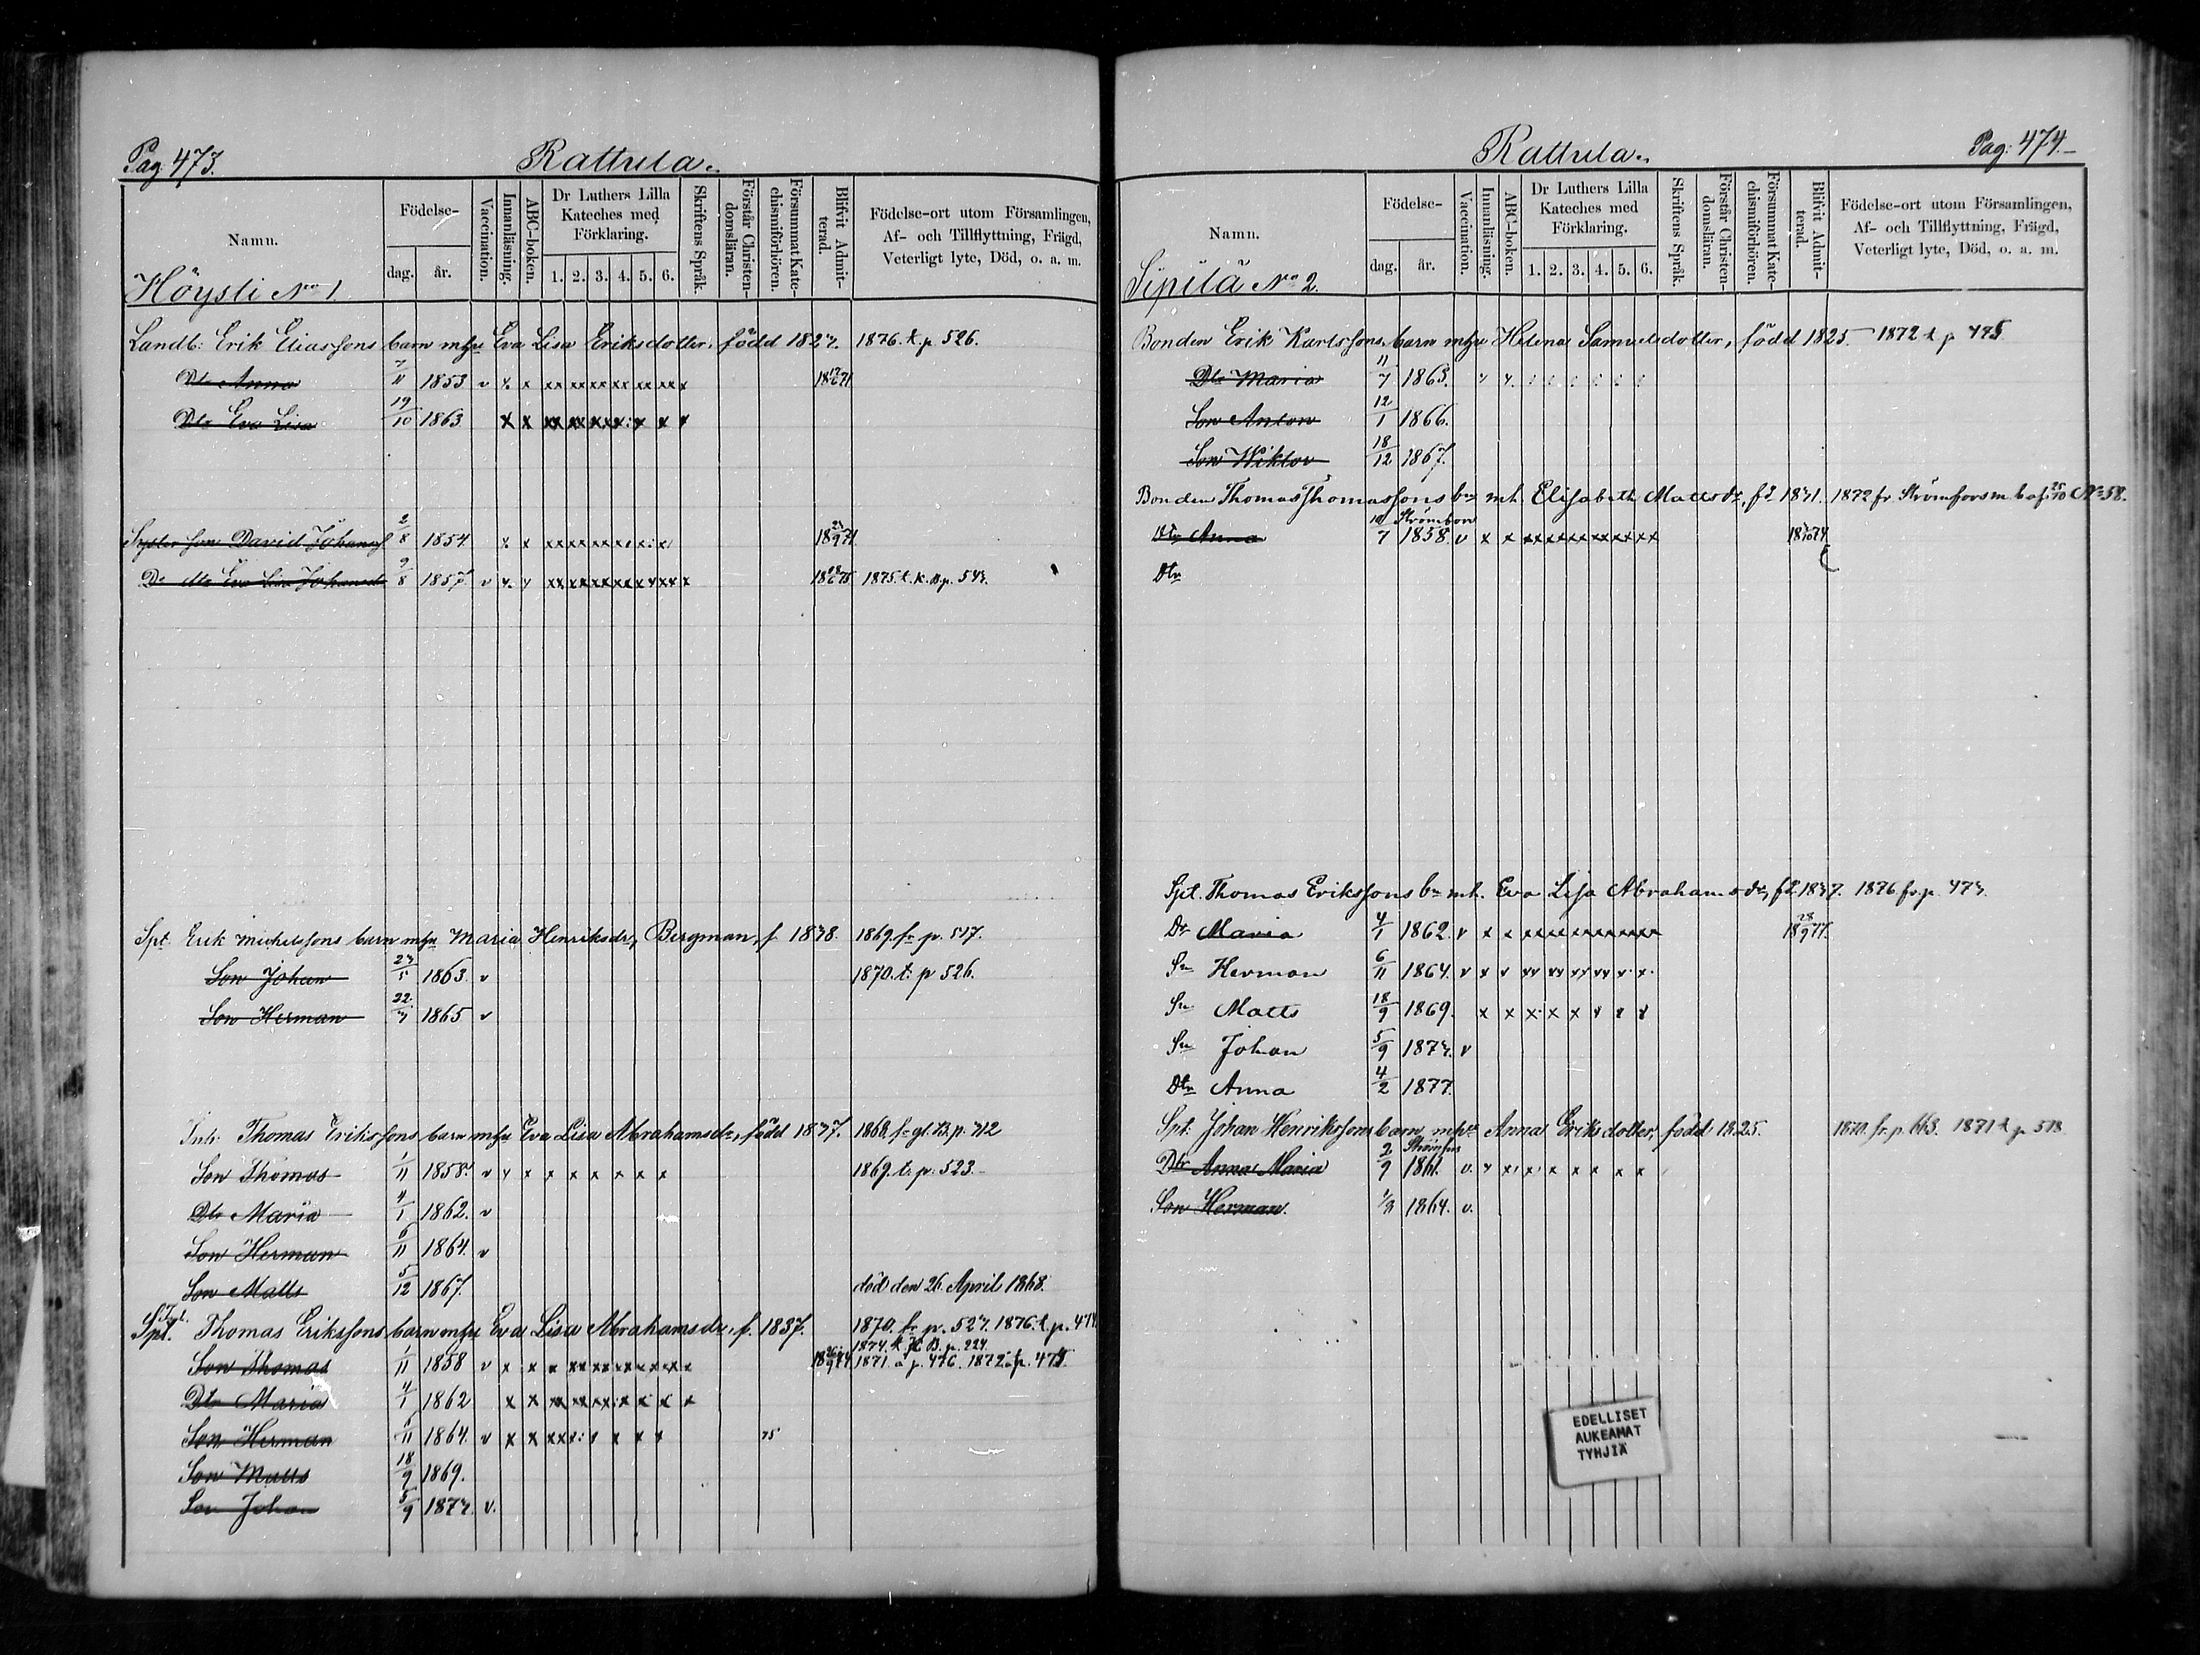 Pag. 473.
Rattula.
Namn.
Födelse-
dag.
år.
Vaccination.
Innanläsning.
ABC-boken.
Dr Luthers Lilla
Kateches med
Förklaring.
1. 2. 3. 4. 5. 6.
Skriftens Språk.
Förstår Christen-
domsläran.
Försummat Kate-
chismiförhören.
Blifvit Admit-
terad.
Födelse-ort utom Församlingen,
Af- och Tillflyttning, Frägd,
Veterligt lyte, Död, o. a. m.
Höysti No 1
Landb: Erik Eliassons barn m hu Eva Lisa Eriksdotter, född 1827. 1876. t. p. 526.
Dtr Anna 7/11 1853 v x x xx xx xx xx xx xx x
Dtr Eva Lisa 19/10 1863 x x xx xx xx x x x x
Syster son David Johanss 2/8 1854
Do dtr Eva Lisa Johansd 9/8 1857 v 1875. t. K. B. p. 543.
Spt. Erik Michelssons barn m hu Maria Henriksdr, Bergman, f 1838. 1869. fr p. 517.
Son Johan 23/5 1863. v 1870. t. p 526.
Son Herman 22/7 1865 v
Inh. Thomas Erikssons barn m hu Eva Lisa Abrahamsdr, född 1837. 1868. fr gl. K.B. p. 712
Son Thomas 1/11 1858. v x x x x x x x x 1869. t. p. 523.
Dtr Maria 4/1 1862. v
Son Herman 6/11 1864. v
Son Matts 5/12 1867. död den 26. April 1868.
Spt. Thomas Erikssons barn m hu Eva Lisa Abrahamsdr, f. 1837. 1870. fr p. 527. 1876. t. p. 474
1874. t. K. B. p. 224
Son Thomas 1/11 1858 v x x x xx xx xx xx x 1871. a p. 476. 1872 a p. 475.
Dtr Maria 4/1 1862 x x xx xx xx x x x x
Son Herman 6/11 1864. v x x xx x x x x 75
Son Matts 18/9 1869.
Son Johan 5/9 1873. v.
Pag: 474.
Rattula.
Namn.
Födelse-
dag.
år.
Vaccination.
Innanläsning.
ABC-boken.
Dr Luthers Lilla
Kateches med
Förklaring.
1. 2. 3. 4. 5. 6.
Skriftens Språk.
Förstår Christen-
domsläran.
Försummat Kate-
chismiförhören.
Blifvit Admit-
terad.
Födelse-ort utom Församlingen,
Af- och Tillflyttning, Frägd,
Veterligt lyte, Död, o. a. m.
Sipilä No 2.
Bonden Erik Karlssons barn m hu Helena Samuelsdotter, född 1825. 1872 t p 475
Dtr Maria 11/7 1863.
Son Anton 12/1 1866.
Son Wiktor 18/12 1867.
Bonden Thomas Thomassons bn mh. Elisabeth Mattsdr, fd 1831. 1872 fr. Strömfors m. b. af 25/10 No 58.
Dtr Anna 10/7 1858. v x x xx xx xx xx xx xx
Dtr
Spt. Thomas Erikssons bn mh. Eva Lisa Abrahamsdr, fd. 1837. 1876 fr. p. 473.
Dr Maria 4/1 1862. v x x xx xx xx xx xx xx 18 28/9 77.
Sn Herman 6/11 1864. v x v vv vv vv vv v x
Sn Matts 18/9 1869. x x x x x x x x
Sn Johan 5/9 1873. v
Dtr Anna 4/2 1877.
Spt. Johan Henrikssons barn m hu Anna Eriksdotter, född 1825. 1870. fr. p. 663. 1871 t p. 518
Strömfors
Dtr Anna Maria 2/9 1861. v. x x x x x x x x
Son Herman. 1/3 1864. v.
EDELLISET
AUKEAMAT
TYHJIÄ